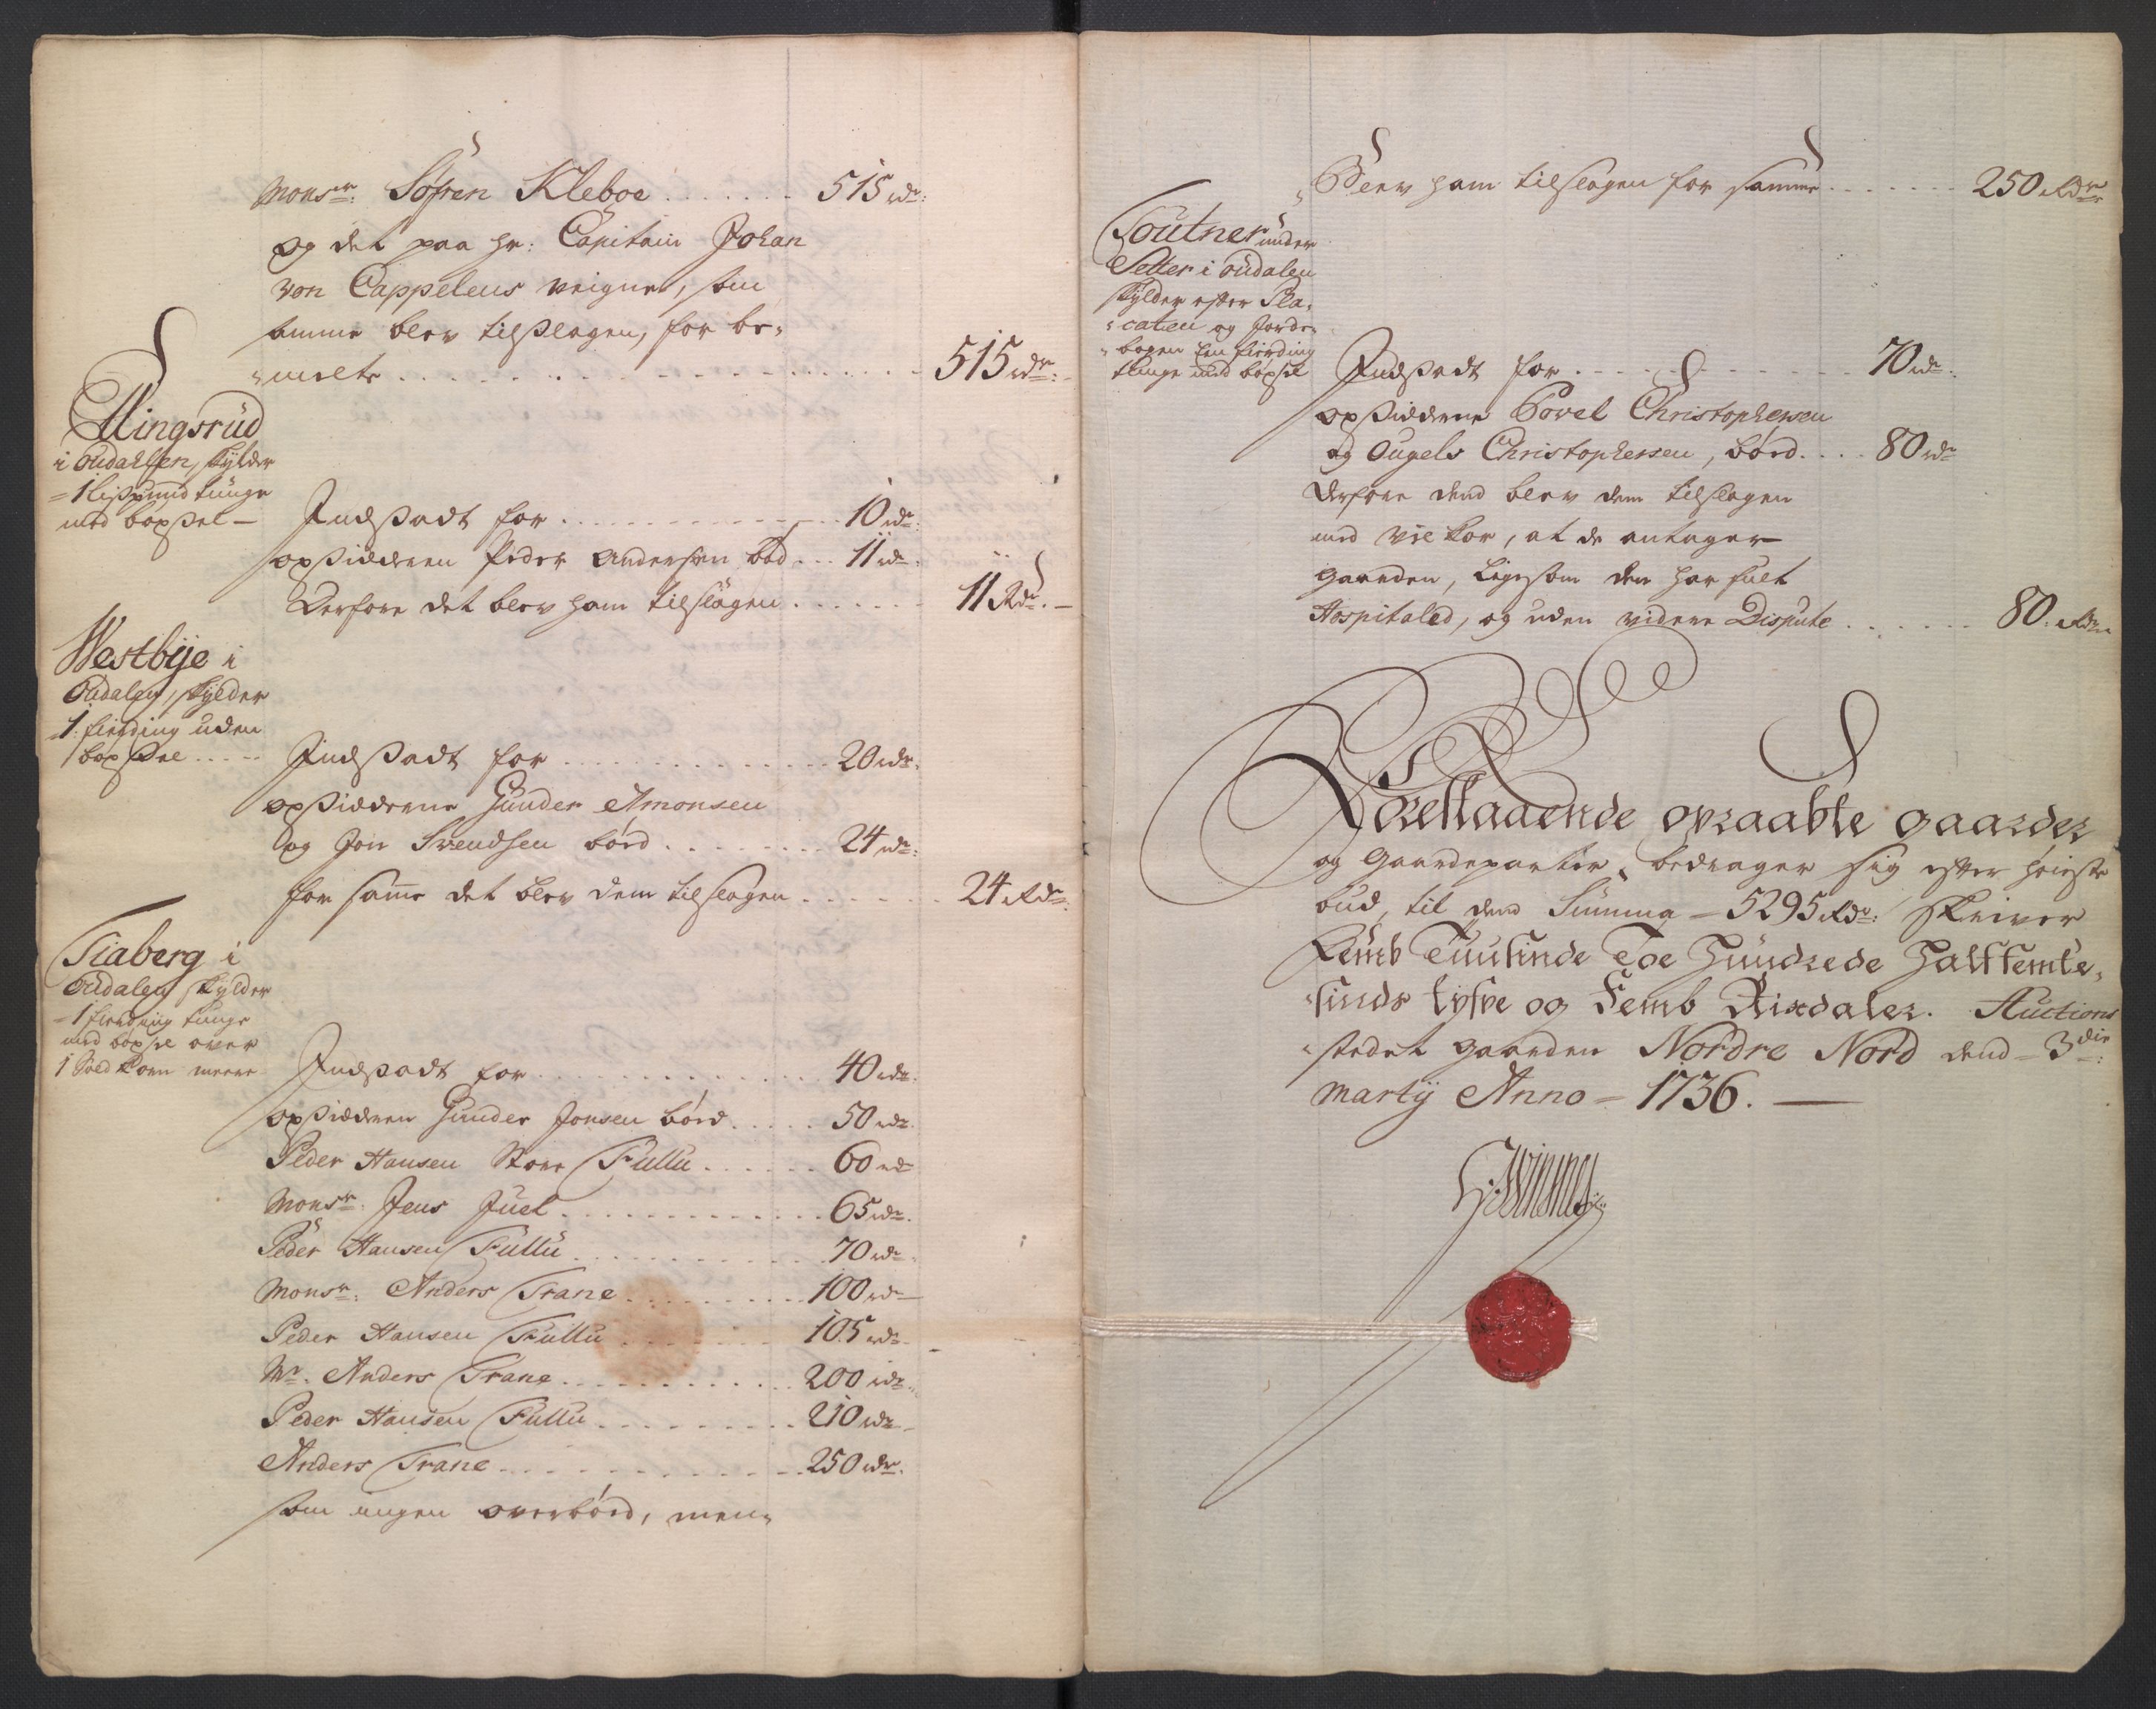 Monsr: Söfren Kleboe . . . . . . . 515 rdr:
og det paa hr: Capitain Johan
von Cappelens veigne, som
samme blev tilslagen, for be-
-melte . . . . . . . . . . . . 515 rdr:
Ellingsrud
i Oudahlen, skylder
= 1 Lispund tunge
med böxsel —
Indsadt for . . . . . . . . . . . . 10 rdr:
opsidderen Peder Andersen bød . . . 11 rdr:
Derfore det blev ham tilslagen . . . . . . . 11 Rdr. —
Westbÿe i
Oudalen, skylder
1 fierding uden
böxsel . . . . .
Indsadt for . . . . . . . . . . . . 20 rdr.
opsidderne Gunder Amonsen
og Jon Svendsen börd . . . . . . . . 24 rdr:
for samme det blev dem tilslagen . . . . . . 24 Rdr.
Tiaberg i
Oudalen skylder
= 1 fierding tunge
med böxsel over
1 Sold korn meere
Indsadt for . . . . . . . . . . . . 40 rdr.
opsidderen Gunder Jonsen börd . . . . . 50 rdr.
Peder Hansen Store Fullu . . . . . . 60 rdr
Monsr: Jens Juel . . . . . . . . . . . 65 rdr.
Peder Hansen Fullu . . . . . . . . . . 70 rdr.
Monsr: Anders Trane . . . . . . . . . 100 rdr
Peder Hansen Fullu . . . . . . . 105 rdr.
Mr. Anders Trane . . . . . . . . . . . 200 rdr.
Peder Hansen Fullu . . . . . . . . . 210 rdr.
Anders Trane . . . . . . . . . . . . 250 rdr.
som ingen overbörd, men-
blev ham tilslagen for samme . . . . . . . 250 Rdr
Toutner under
Setter i Oudalen
skylder efter Pla-
-caten og Jorde-
-bogen een fierding
tunge med böxsel
Indsadt for . . . . . . . . . . . . 70 rdr.
opsidderne Povel Christophersen
og Engels Christophersen, börd . . . . 80 rdr
Derfore dend blev dem tilslagen
med Vilkor, at de antager
gaarden, Ligesom den har fult
Hospitaled, og uden videre Dispute . . . . . . . 80. Rdr.
Forestaaende opraabte gaarder
og Gaardeparter, bedrager sig efter höieste
bud, til dend Summa = 5295 Rdr: skriver
Femb Tuusinde Toe Hundrede Halffemte-
-sinds tyfve og Femb Rixdaler. Auctions
-stedet gaarden Nordre Nord dend = 3die:
Martÿ Anno = 1736. —